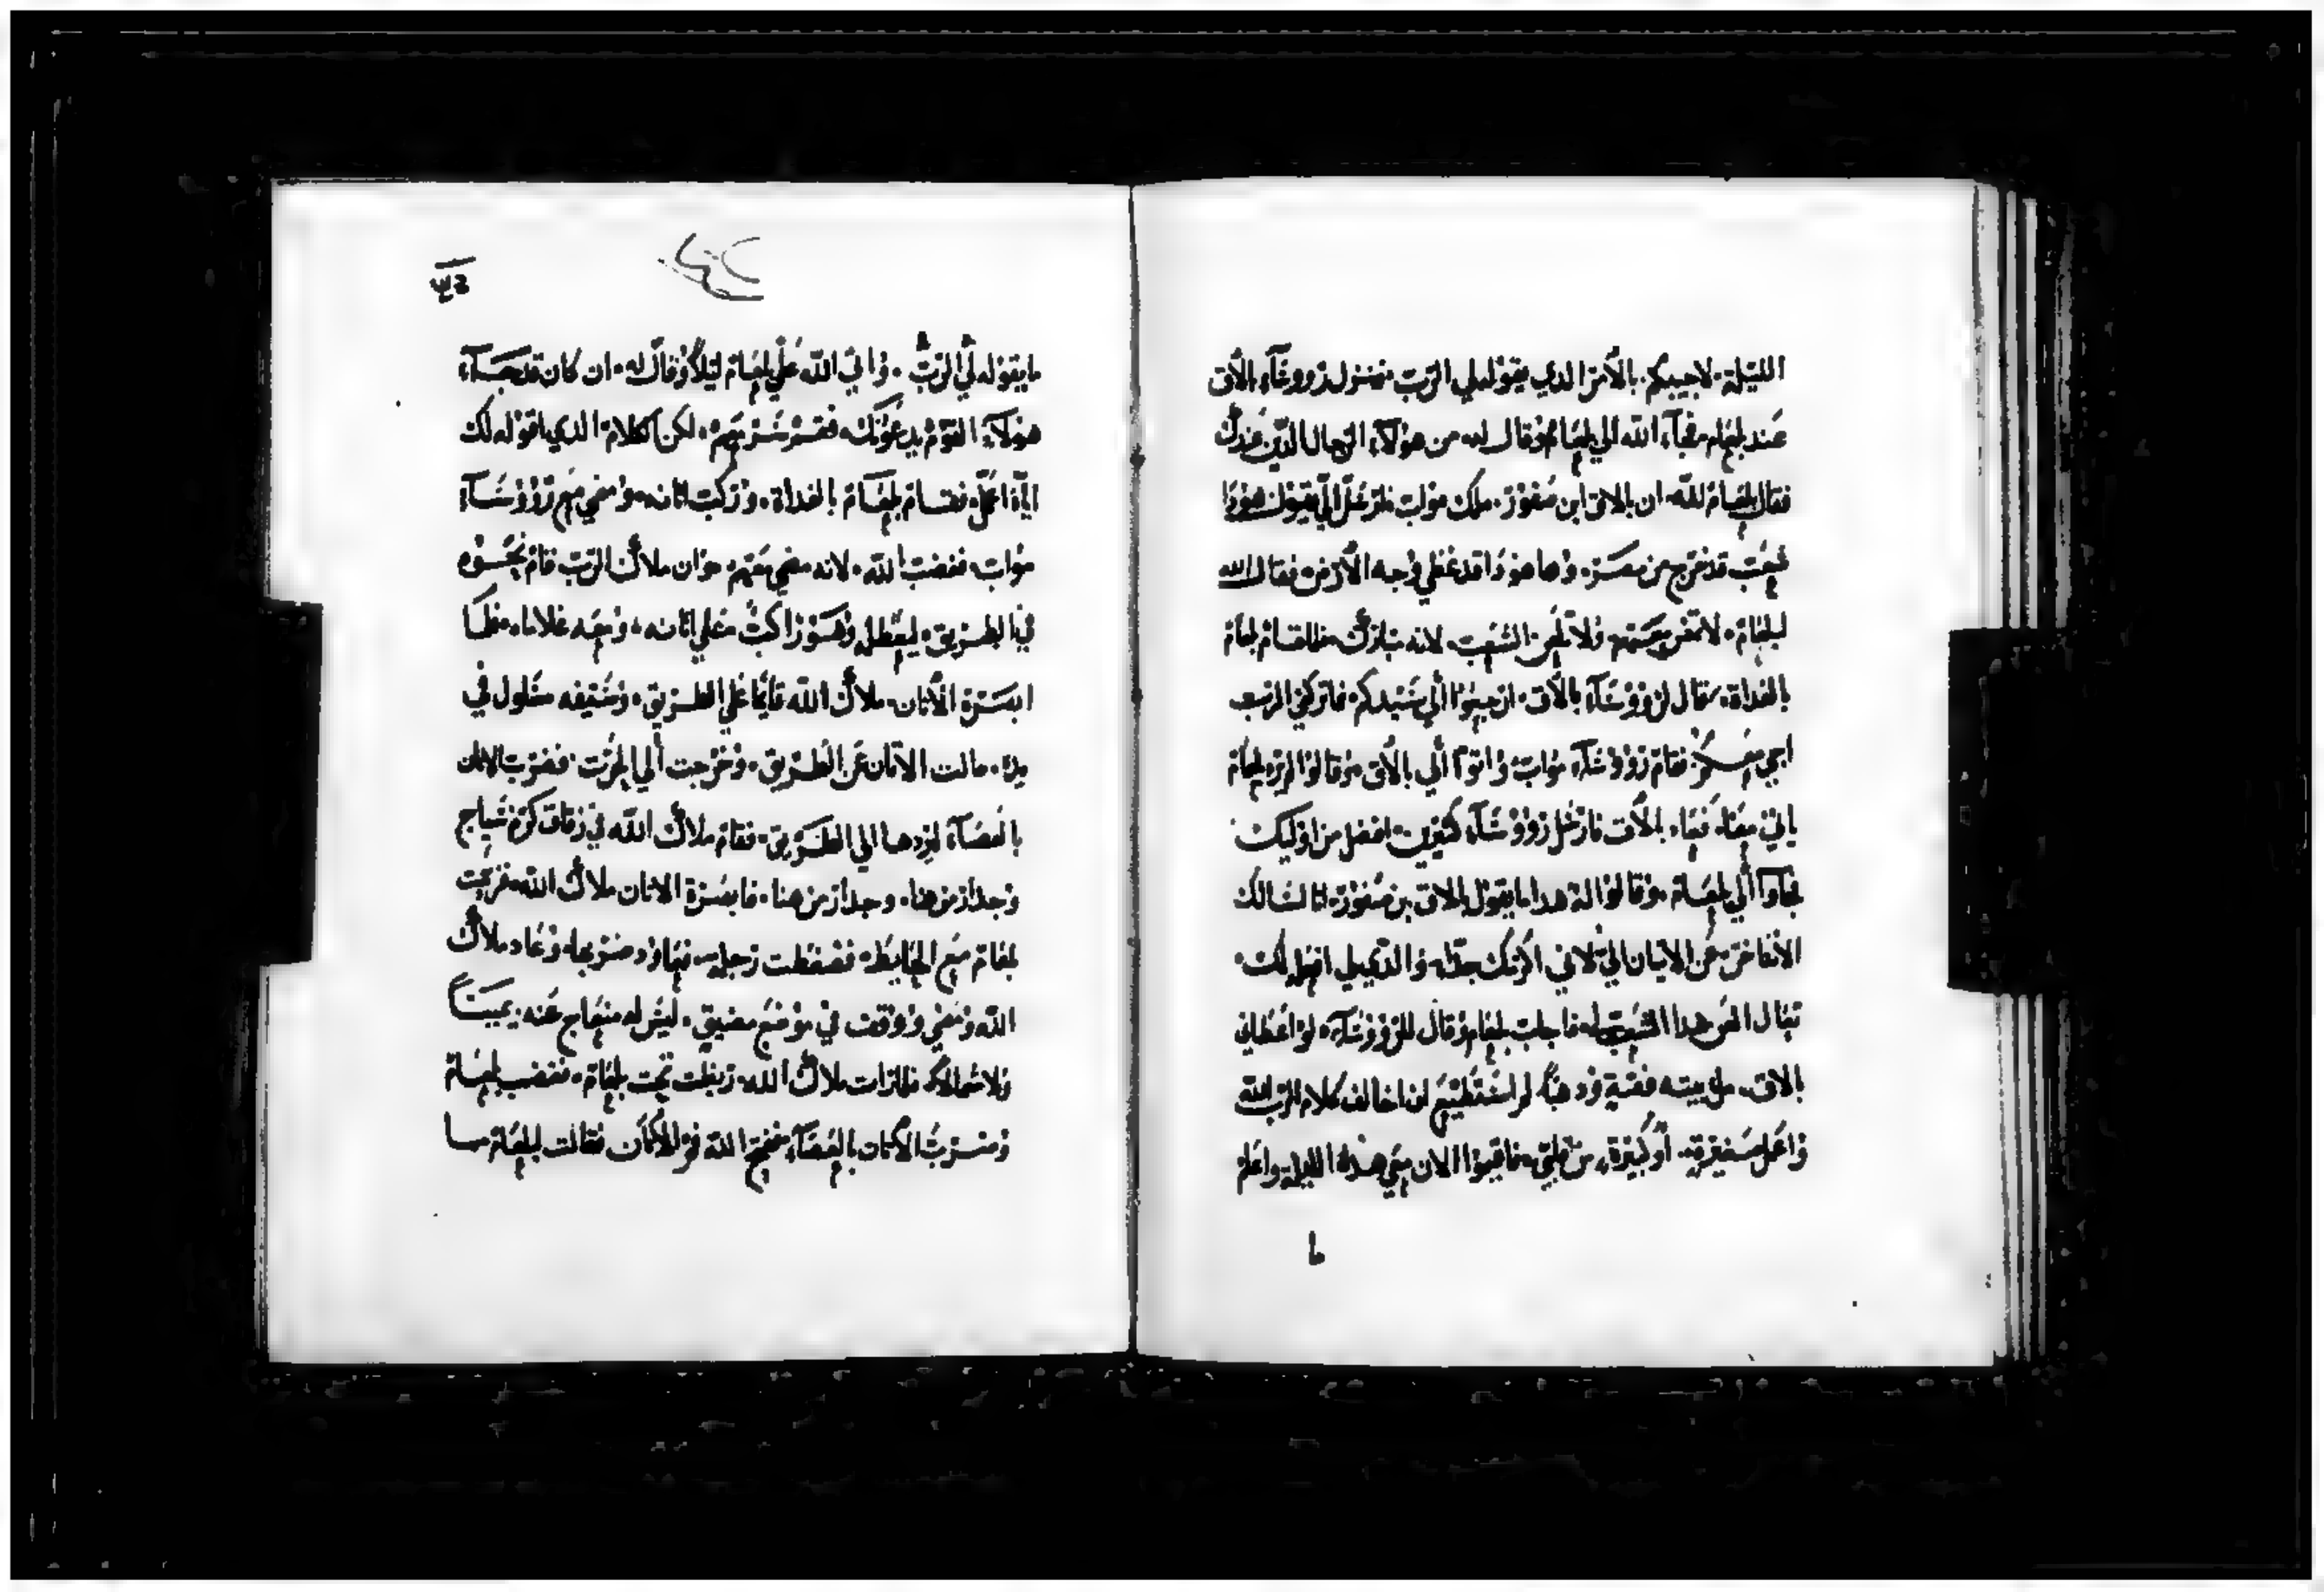 الليلة. لاجيبكم. بالامر الذي يقوله لي الرب. فنزل روسآء بالاق
عند بلعام فجآء الله الي بلعام وقال له من هولآء الرجال الذين عندك
فقال بلعام لله. ان بالاق ابن صفور. ملك مواب ارسل الي يقول هودا
شعب قد خرج من مصر. وها هو دا قد غطي وجه الارض فقال الله
لبلعام. لا تمض معهم. ولا تلعن الشعب. لانه مبارك. فلما قام بلعام
بالغداة. قال لروسآء بالاق. ارجعوا الي سيدكم. فما تركني الرب
اجي معكم. فقام روسآء مواب. واتوا الي بالاق. وقالوا لم يرد بلعام
ياتي معنا. فعاد بالاق فارسل روسآء كثيرين. افضل من اوليك
فجاوا الي بلعام. وقالوا له هدا ما يقول بالاق بن صفور. انا لنسالك
الا تتاخر عن الاتيان الي. لاني اكرمك جدا. والدي افعل لك.
تعال العن هدا الشعب. فاجاب بلعام وقال للروسآء. لو اعطاني
بالاق. مل بيته فضة ودهبا. لم استطيع ان اخالف كلام الرب الله
واعمل صغيرة. او كبيرة. من قلبي. فاقيموا الان معي هده الليلة. واعلم
ما
ما يقوله لي الرب. واتي الله علي بلعام ليلا وقال له. ان كان قد جآء
هولآء القوم يدعونك. فقم سر معهم. لكن الكلام الدي اقوله لك
اياه اعمل. فقام بلعام بالغداة. وركب اتانه. ومضي مع روسآء
مواب. فغضب الله. لانه مضي معهم. وان ملاك الرب قام نحوه
في الطريق. ليعطله وهو راكب علي اتانه. ومعه غلاماه. فلما
ابصرة الاتان. ملاك الله قايما علي الطريق. وسيفه مسلول في
يده. مالت الاتان عن الطريق. وخرجت الي الحرت. فضرب الاتان
بالعصآة ليردها الي الطريق. فقام ملاك الله في زقاق كرم سياج
وجدار من هنا. وجدار من هنا. فابصرة الاتان ملاك الله. فزحمت
بلعام مع الحايط. فضغطت رجله. فعاود ضربها. وعاد ملاك
الله ومضي ووقف في موضع مضيق. ليس له منهاج عنه يمينا
ولا شمالا. فلما رات ملاك الله. ربضت تحت بلعام. فغضب بلعام
وضرب الاتان بالعصآة. ففتح الله فم الاتان فقالت لبلعام ما